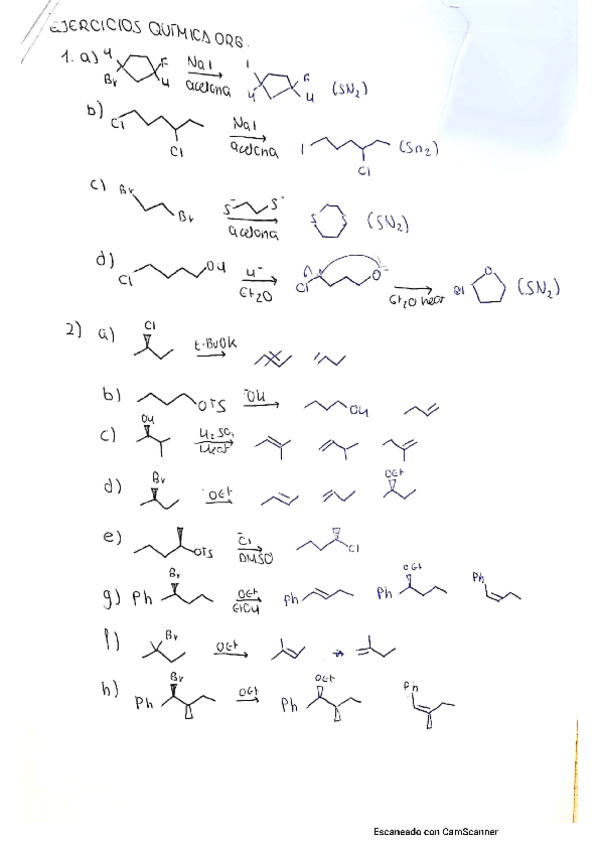 EJERCICIOS QUÍMICA ORG.
1. a) H Br F H NaI acetona I H F H (SN2)
b) Cl Cl NaI acetona I Cl (SN2)
c) Br Br S⁻ S⁻ acetona S S (SN2)
d) Cl OH H⁻ Et2O Cl O⁻ Et2O heat O (SN2)
2) a) Cl t-BuOK
b) OTS ⁻OH OH
c) OH H2SO4 Heat
d) Br ⁻OEt OEt
e) OTS ⁻Cl DMSO Cl
g) Ph Br OEt EtOH Ph Ph OEt Ph
f) Br OEt
h) Ph Br OEt Ph OEt Ph
Escaneado con CamScanner